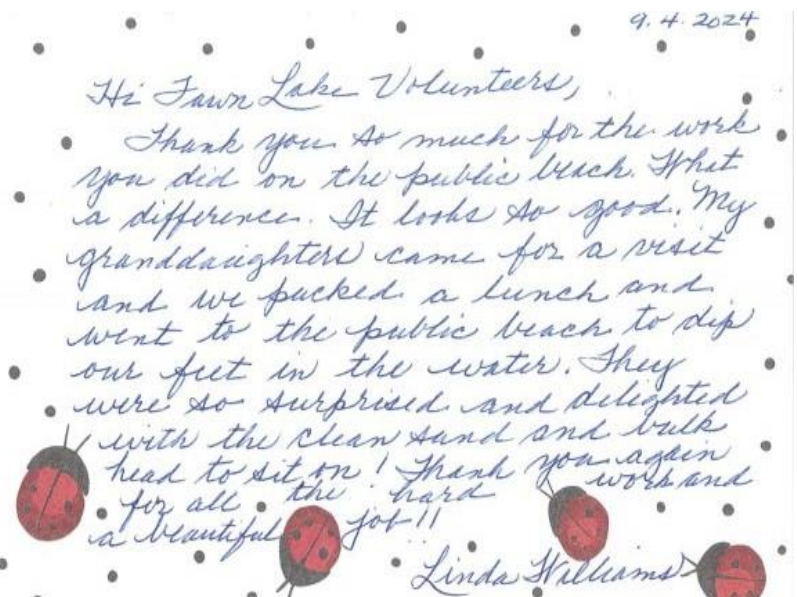 9.4.2024
Hi Fawn Lake Volunteers,
Thank you so much for the work
you did on the public beach. What
a difference. It looks so good. My
granddaughters came for a visit
and we packed a lunch and
went to the public beach to dip
our feet in the water. They
were so surprised and delighted
with the clean sand and bulk
head to sit on! Thank you again
for all the hard work and
a beautiful job!!
Linda Williams